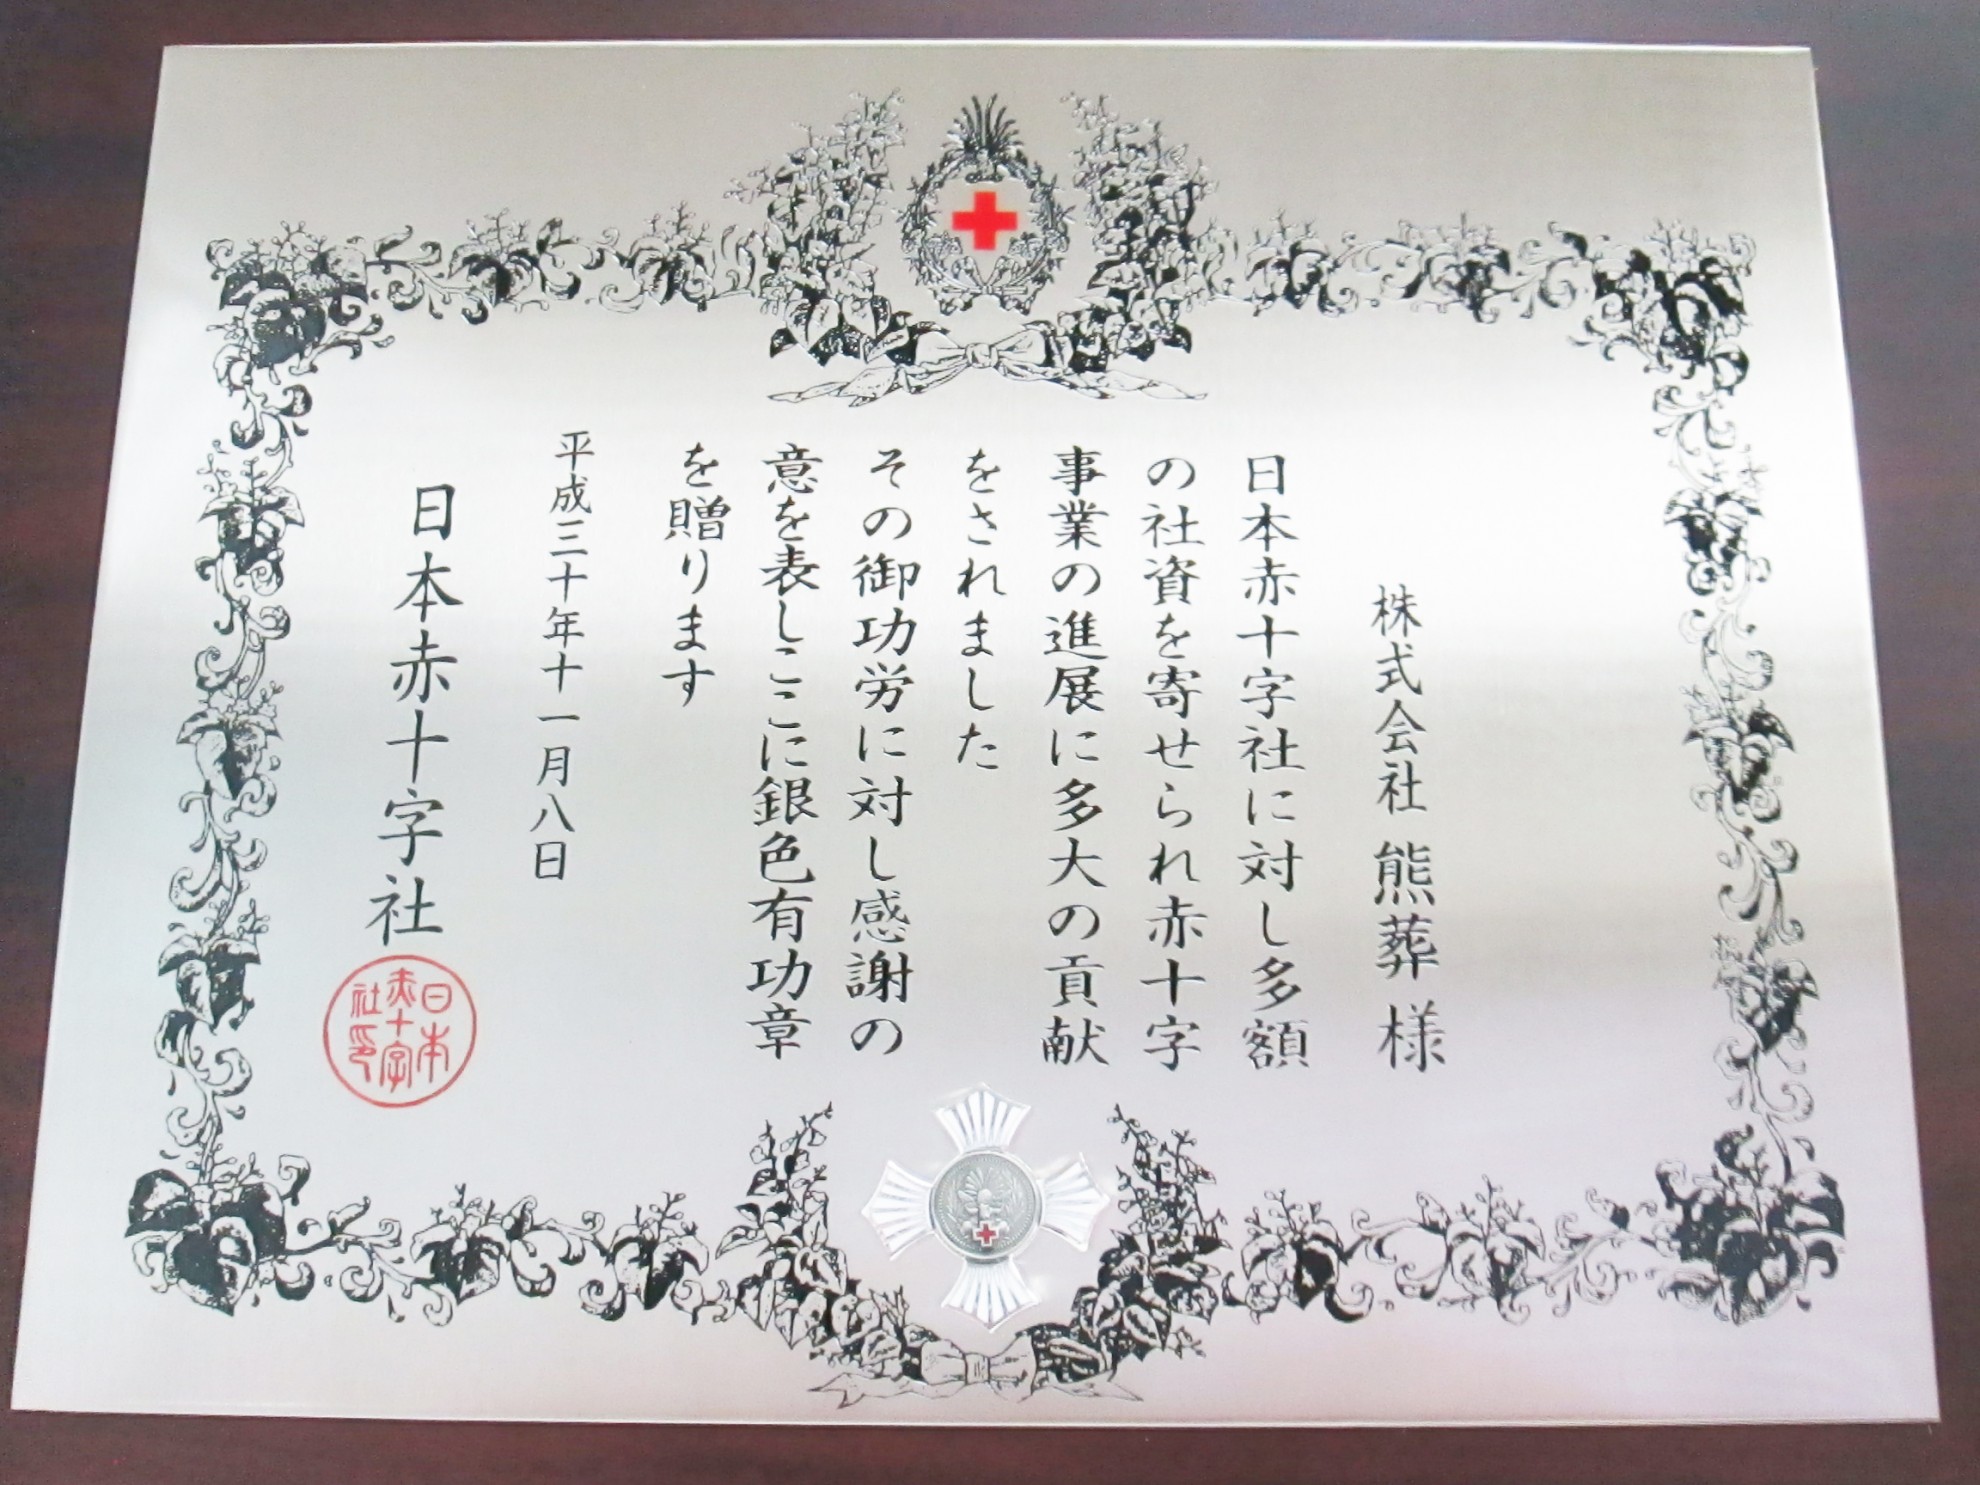 株式会社 熊葬 様
日本赤十字社に対し多額
の社資を寄せられ赤十字
事業の進展に多大の貢献
をされました
その御功労に対し感謝の
意を表しここに銀色有功章
を贈ります
平成三十年十一月八日
日本赤十字社
日本
赤十字
社印